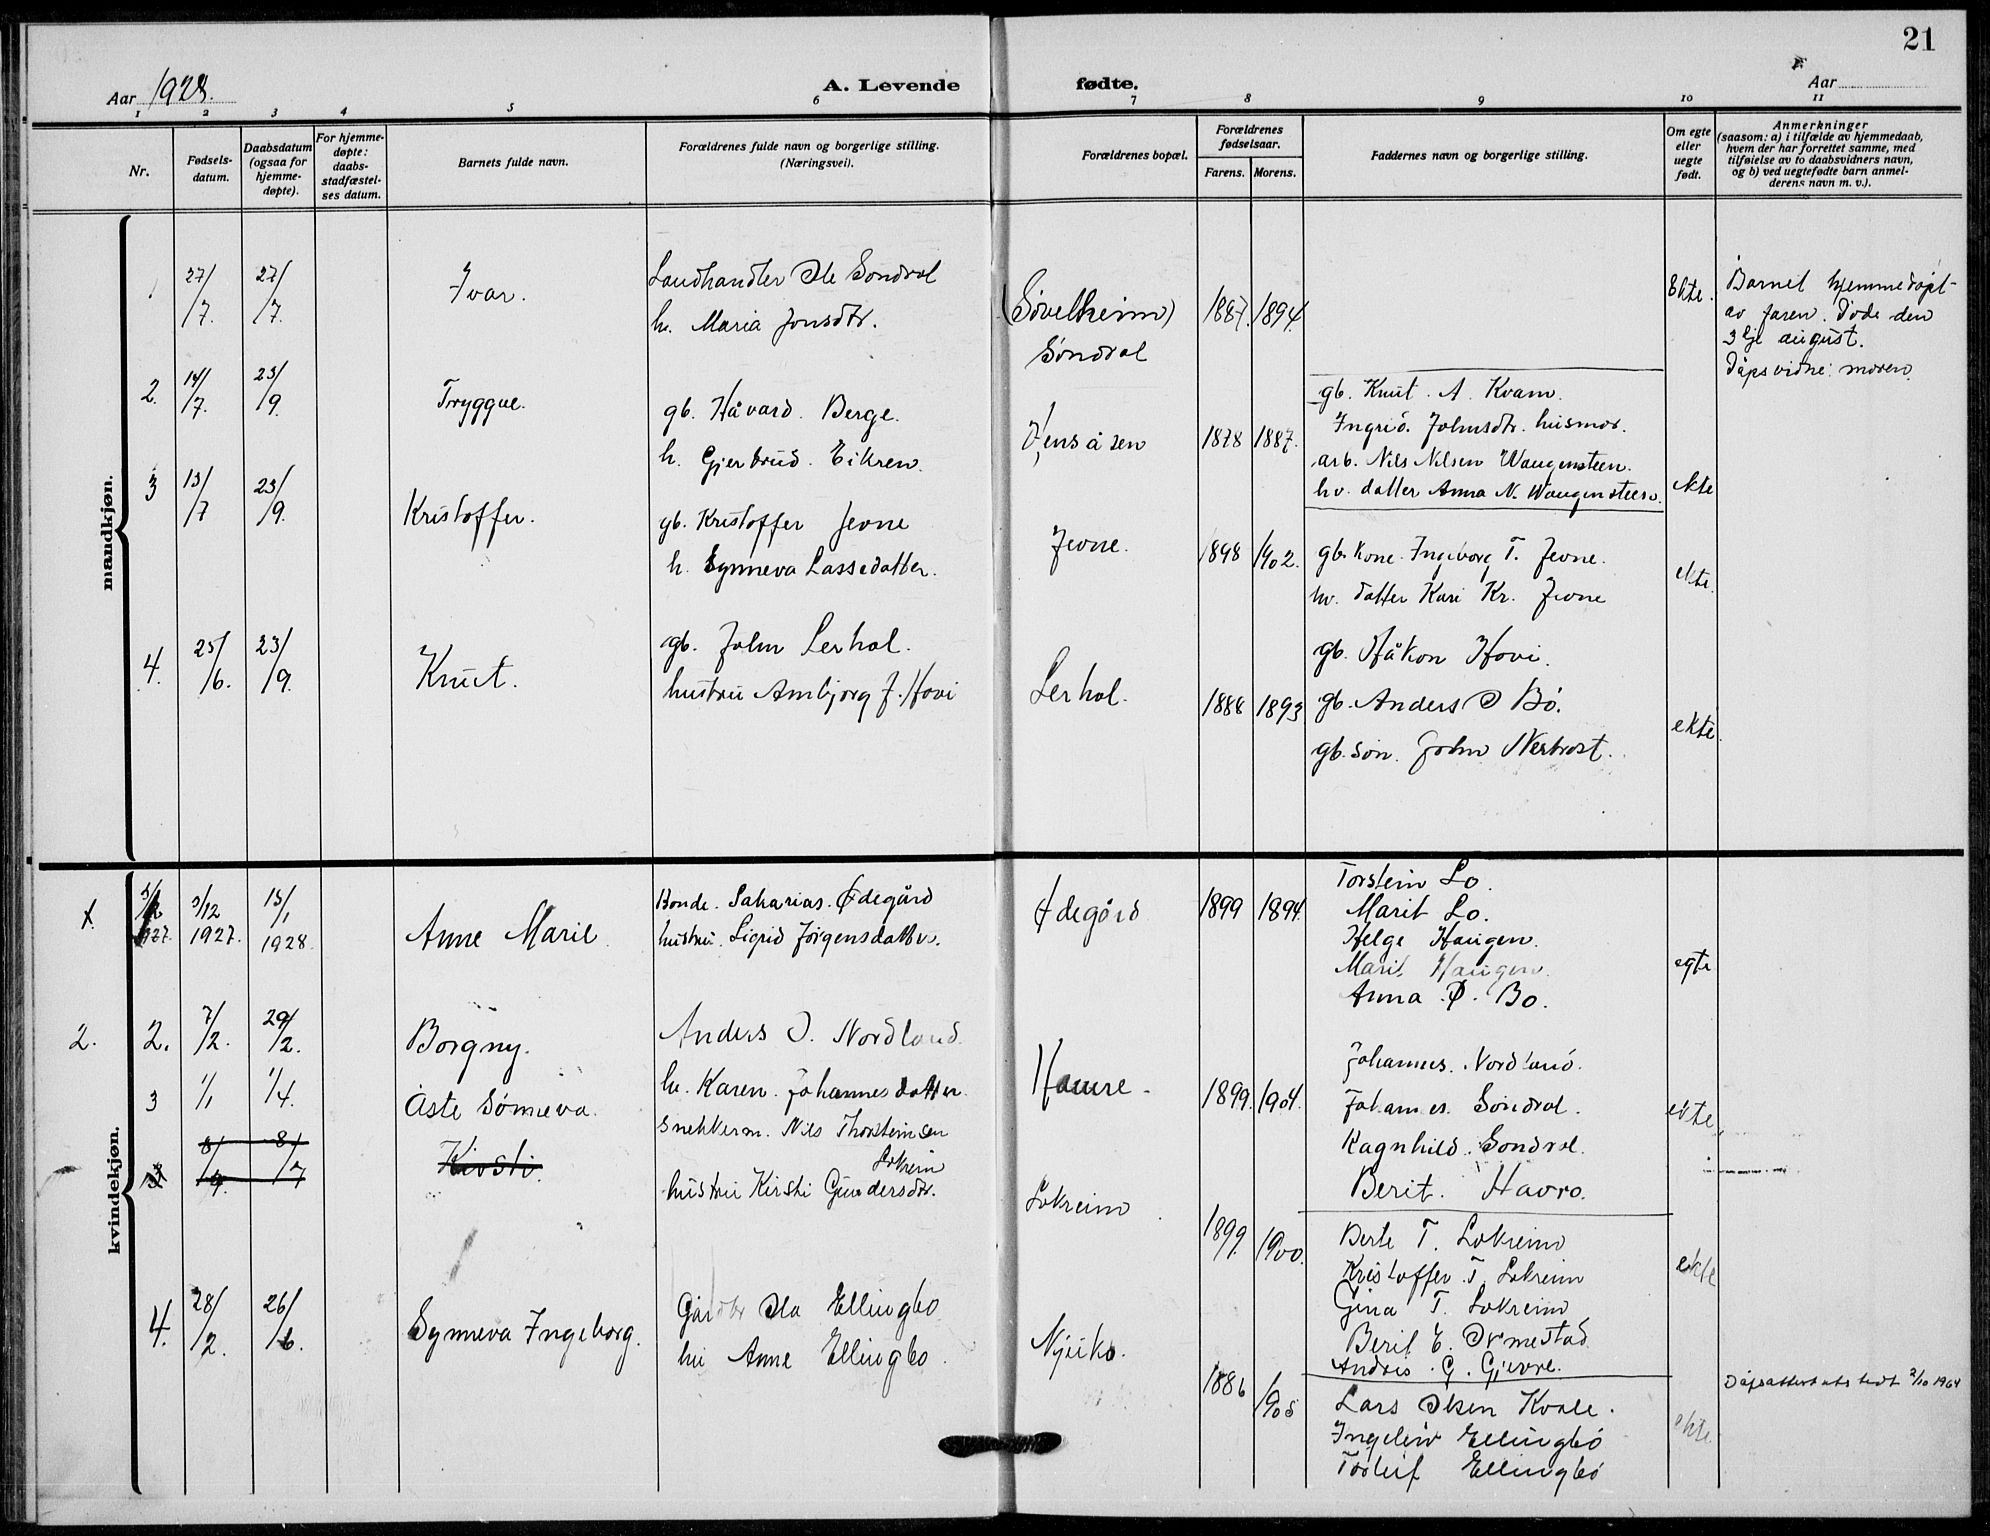 21
Aar 1928. A. Levende fødte. Aar
1 2 3 4 5 6 7 8 9 10 11
Nr.
Fødsels-
datum.
Daabsdatum
(ogsaa for
hjemme-
døpte).
For hjemme-
døpte:
daabs-
stadfæstel-
ses datum.
Barnets fulde navn.
Forældrenes fulde navn og borgerlige stilling.
(Næringsvei).
Forældrenes bopæl.
Forældrenes
fødselsaar.
Farens. Morens.
Faddernes navn og borgerlige stilling.
Om egte
eller
uegte
født.
Anmerkninger
(saasom: a) i tilfælde av hjemmedaab,
hvem der har forrettet samme, med
tilføielse av to daabsvidners navn,
og b) ved uegtefødte barn anmel-
derens navn m. v.).
mandkjøn.
27/7. 27/7. Ivar.
Landhandler Ole Søndrol
h. Maria Jonsdtr.
(Søvelheim)
Søndrol
1887. 1894.
Ekte.
Barnet hjemmedøpt
av faren. Døde den
3dje august.
Dåpsvidne: moren.
2. 14/7. 23/9. Tryggve.
gb. Håvard. Berge.
h. Gjertrud. Eikren.
1878 1887.
gb. Knut. A. Kvam.
Ingrid. Johnsdtr. husmor.
arb. Nils Nilsen Waugensteen.
hv. datter Anna N. Waugensteen.
ekte
3 13/7 23/9. Kristoffer.
gb. Kristoffer Jevne
h. Synneva Lassedatter.
Jevne.
1898 1902.
gb. kone. Ingeborg T. Jevne.
hv. datter Kari Kr. Jevne
ekte.
4. 25/6. 23/9. Knut.
gb. John Lerhol.
hustru Ambjørg J. Hovi
Lerhol.
1888 1893
gb. Håkon Hovi.
gb. Anders O Bø.
gb. søn. John Nerbrøt.
ekte.
kvindekjøn.
1. 3/12 1927. 15/1 1928. Anne Marie
Bonde. Sakarias. Ødegård
hustru. Sigrid Jørgensdatter.
Ødegård
1899 1894.
Torstein Lo.
Marit Lo.
Helge Haugen.
Marit Haugen.
Anna. Ø. Bo.
egte
2. 2. 7/2. 29/2. Borgny.
Anders O. Nordland.
h. Karen. Johannesdatter.
Hamre -
1899. 1904.
Johannes. Nordland.
Johannes. Søndrol.
Ragnhild. Søndrol.
Berit. Havro.
ekte
3 1/1 1/4. Åste Sønneva.
snekkerm. Nils Thorsteinsen
Lokrein
hustru Kirsti Gundersdtr.
Lokrein
1899. 1900.
3 8/9. 8/7 Kirsti.
Berte T. Lokrein
Kristoffer. T. Lokrein
Gina T. Lokrein
Berit E. Ormestad
Andris. G. Gjevre.
ekte
4. 28/2. 26/6. Synneva Ingeborg.
Gårdbr Ola Ellingbø
hu Anne Ellingbø.
Nyeiko.
1886 1905
Lars Olsen Kvale.
Ingeleiv Ellingbø
Torleif Ellingbø
ekte
Dåpsattest utstedt 2/10 1964